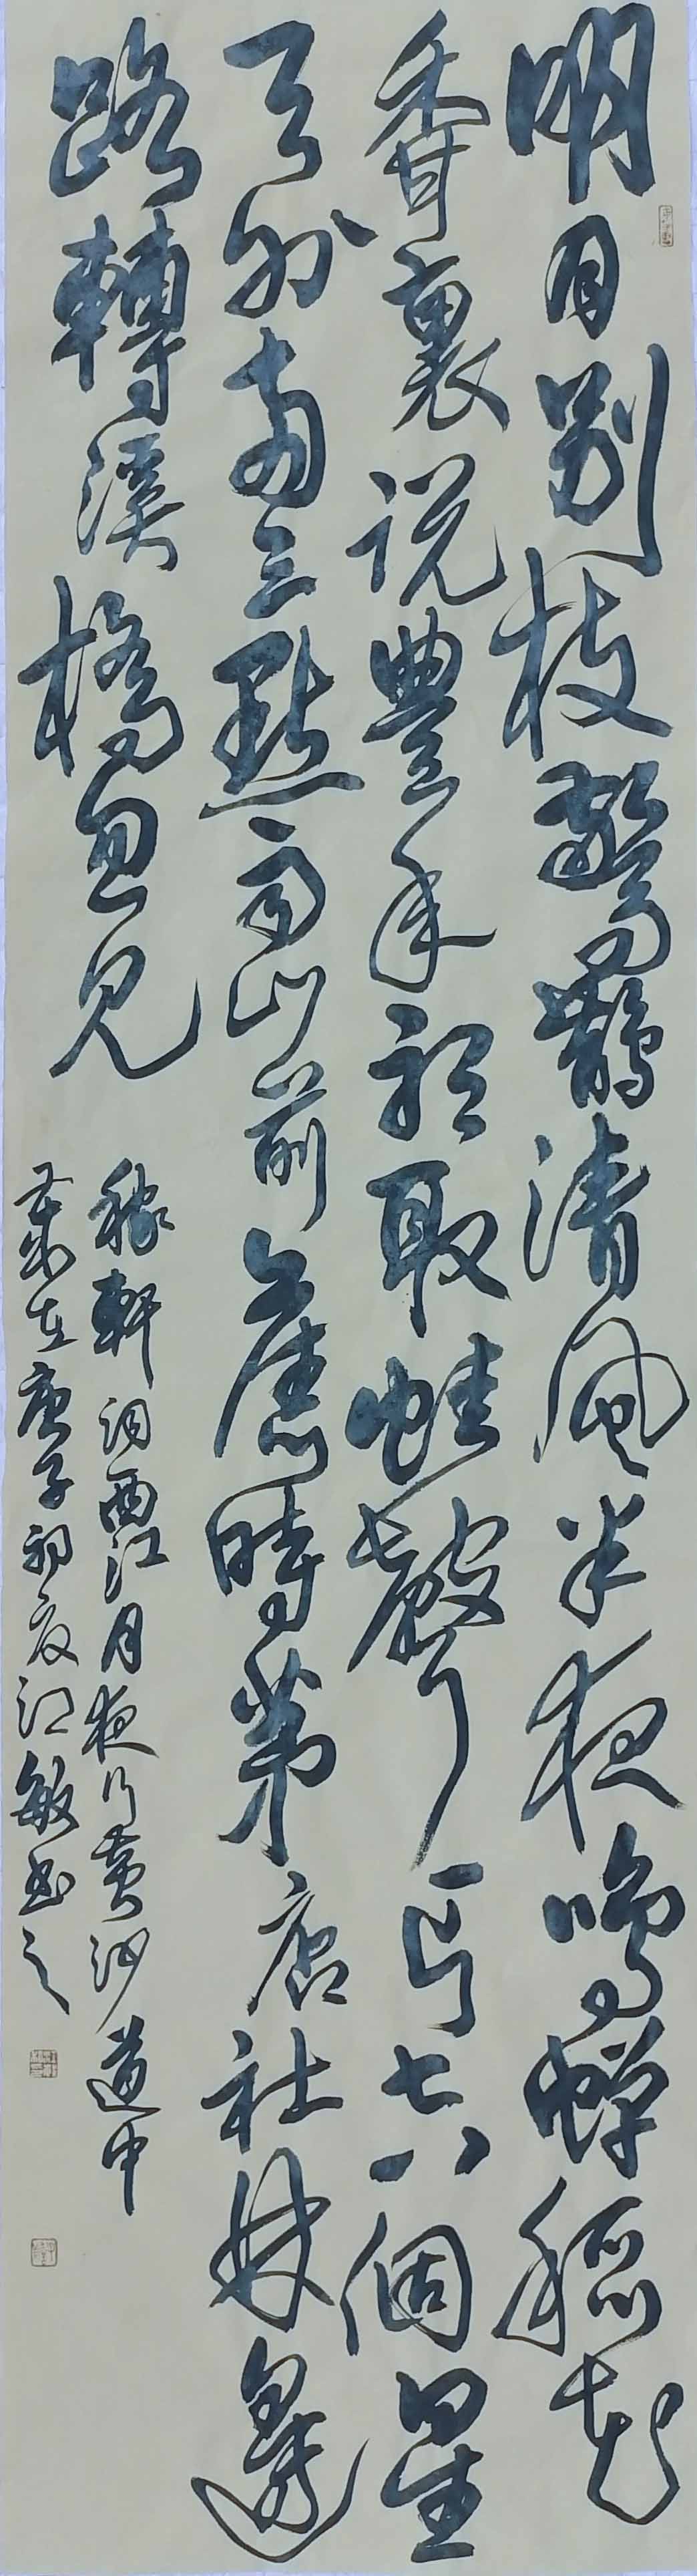 明月別枝驚鵲清風半夜鳴蟬稻花
香裏說豐年聽取蛙聲一片七八個星
天外兩三點雨山前舊時茅店社林邊
路轉溪橋忽見
稼軒詞西江月夜行黃沙道中
歲在庚子初夏江敏書之